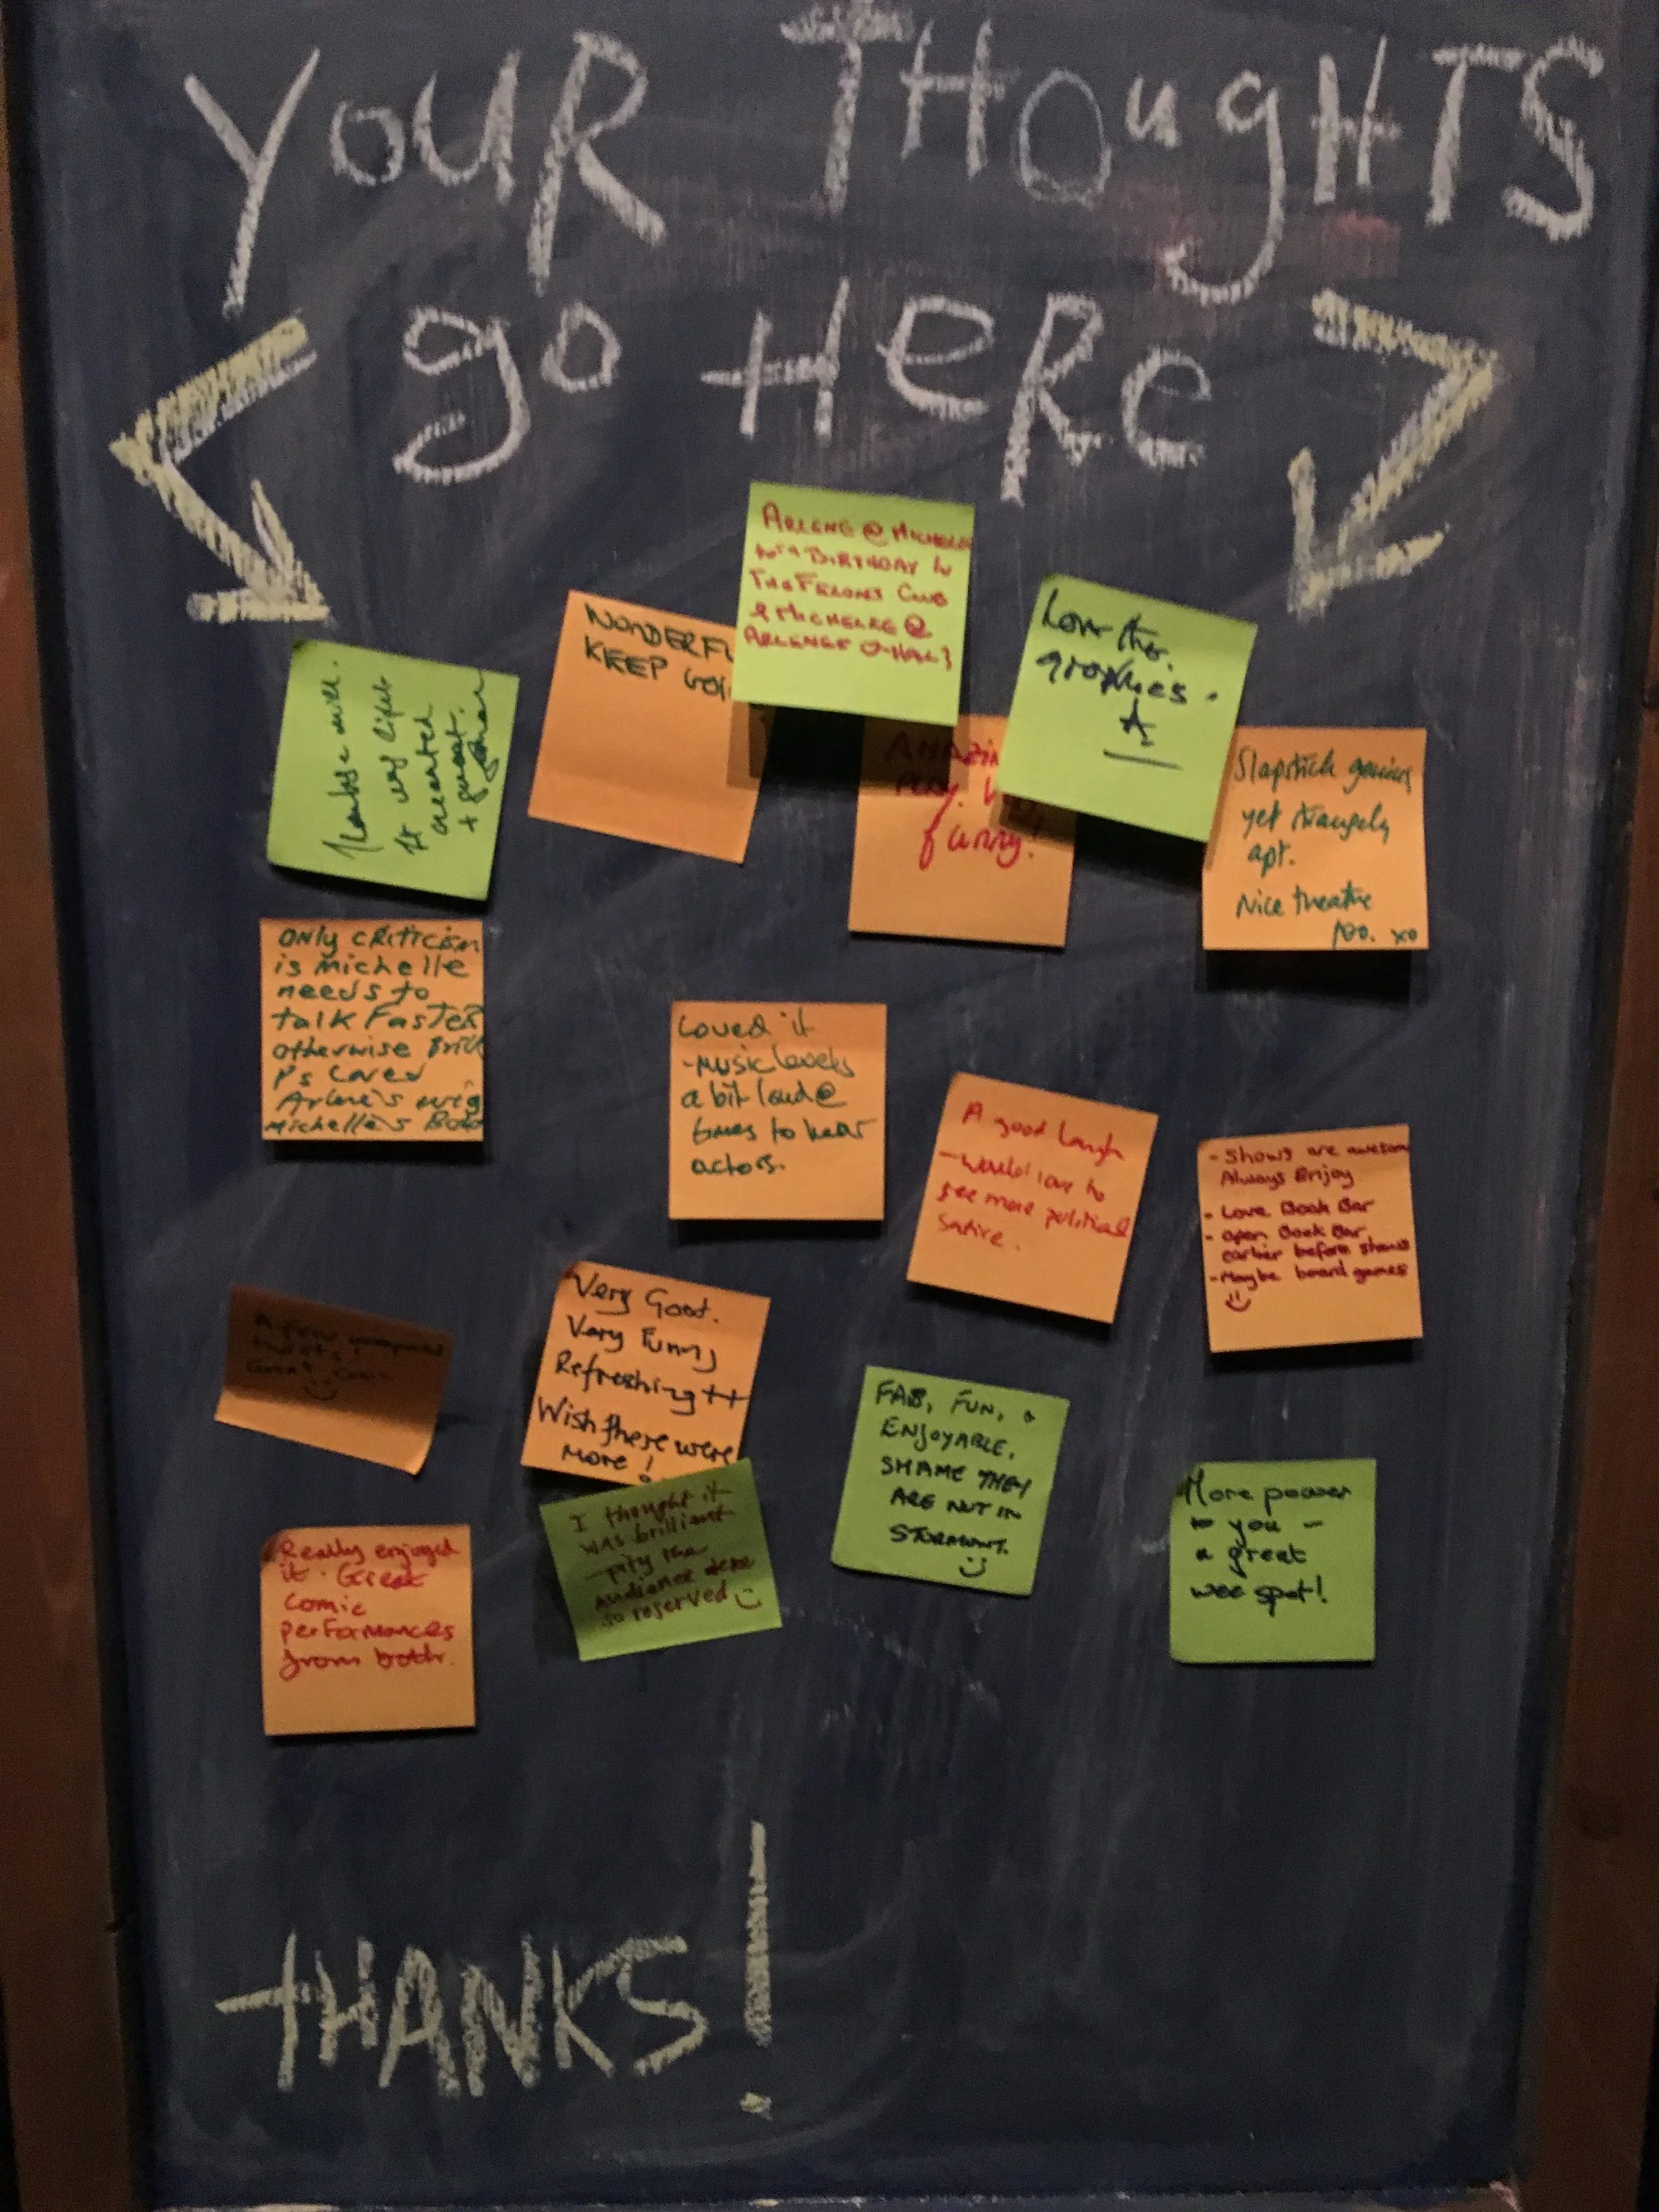 YOUR THOUGHTS
go HeRe
ARLENE @ MICHELLE
BIRTHDAY IN
THE FELONS CLUB
& MICHELLE @
WONDERFU
KEEP GOI
Love the
graphies.
it
very
created
+
AMAZIN
PLAY. V
funny!
Slapstick genius
yet strangely
apt.
Nice theatre
too. xo
only criticism
is Michelle
needs to
talk FasTER
otherwise Brill
Ps Loved
Arlene's wig
Michelle's Boto
Loved it
- Music levels
a bit loud @
times to hear
actors.
A good laugh
- Would love to
see more political
satire.
- Shows are awesome
Always Enjoy
- Love Book Bar
- Open Book Bar
earlier before shows
- Maybe board games
A few unexpected
twists!
Great
Very Good.
Very Funny
Refreshing ++
Wish there were
more!
FAB, FUN, &
ENJOYABLE.
SHAME THEY
ARE NOT IN
STORMONT.
More power
to you -
a great
wee spot!
I thought it
was brilliant
- pity the
audience were
so reserved
Really enjoyed
it. Great
comic
performances
from both.
THANKS!